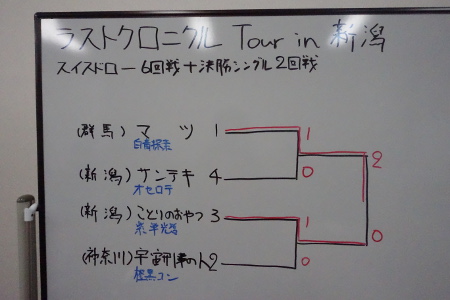 ラストクロニクル Tour in 新潟
スイスドロー 6回戦+決勝シングル2回戦
(群馬) マツ 1
白青探索
1
0
2
(新潟) サンテキ 4
オセロテ
(新潟) ことりのおやつ 3
1
0
0
(神奈川) 宇宙 の人 2
極黒コン